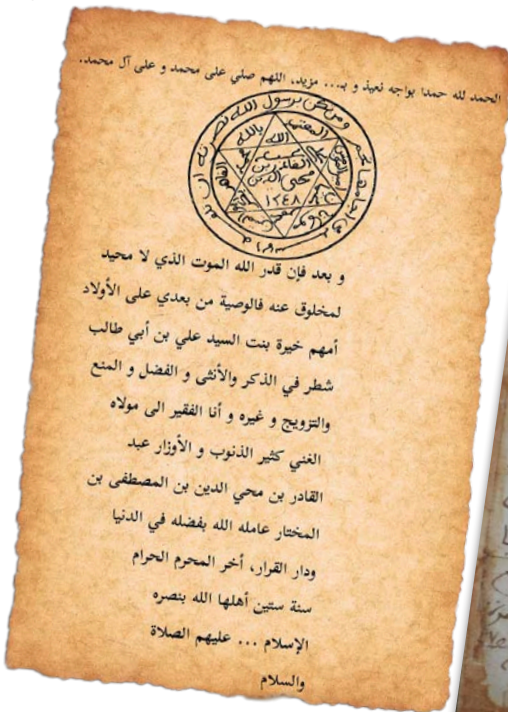 الحمد لله حمدا يواجه نعيذ و بـ... مزيد، اللهم صلي على محمد و على آل محمد.
الله بالله
محي الدين
١٢٤٨
و بعد فإن قدر الله الموت الذي لا محيد
لمخلوق عنه فالوصية من بعدي على الأولاد
أمهم خيرة بنت السيد علي بن أبي طالب
شطر في الذكر والأنثى و الفضل و المنع
والتزويج و غيره و أنا الفقير الى مولاه
الغني كثير الذنوب و الأوزار عبد
القادر بن محي الدين بن المصطفى بن
المختار عامله الله بفضله في الدنيا
ودار القرار، أخر المحرم الحرام
سنة ستين أهلها الله بنصره
الإسلام ... عليهم الصلاة
والسلام